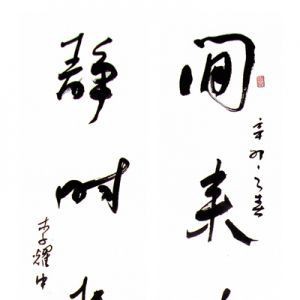 闲来
辛卯之春
静时
李耀中